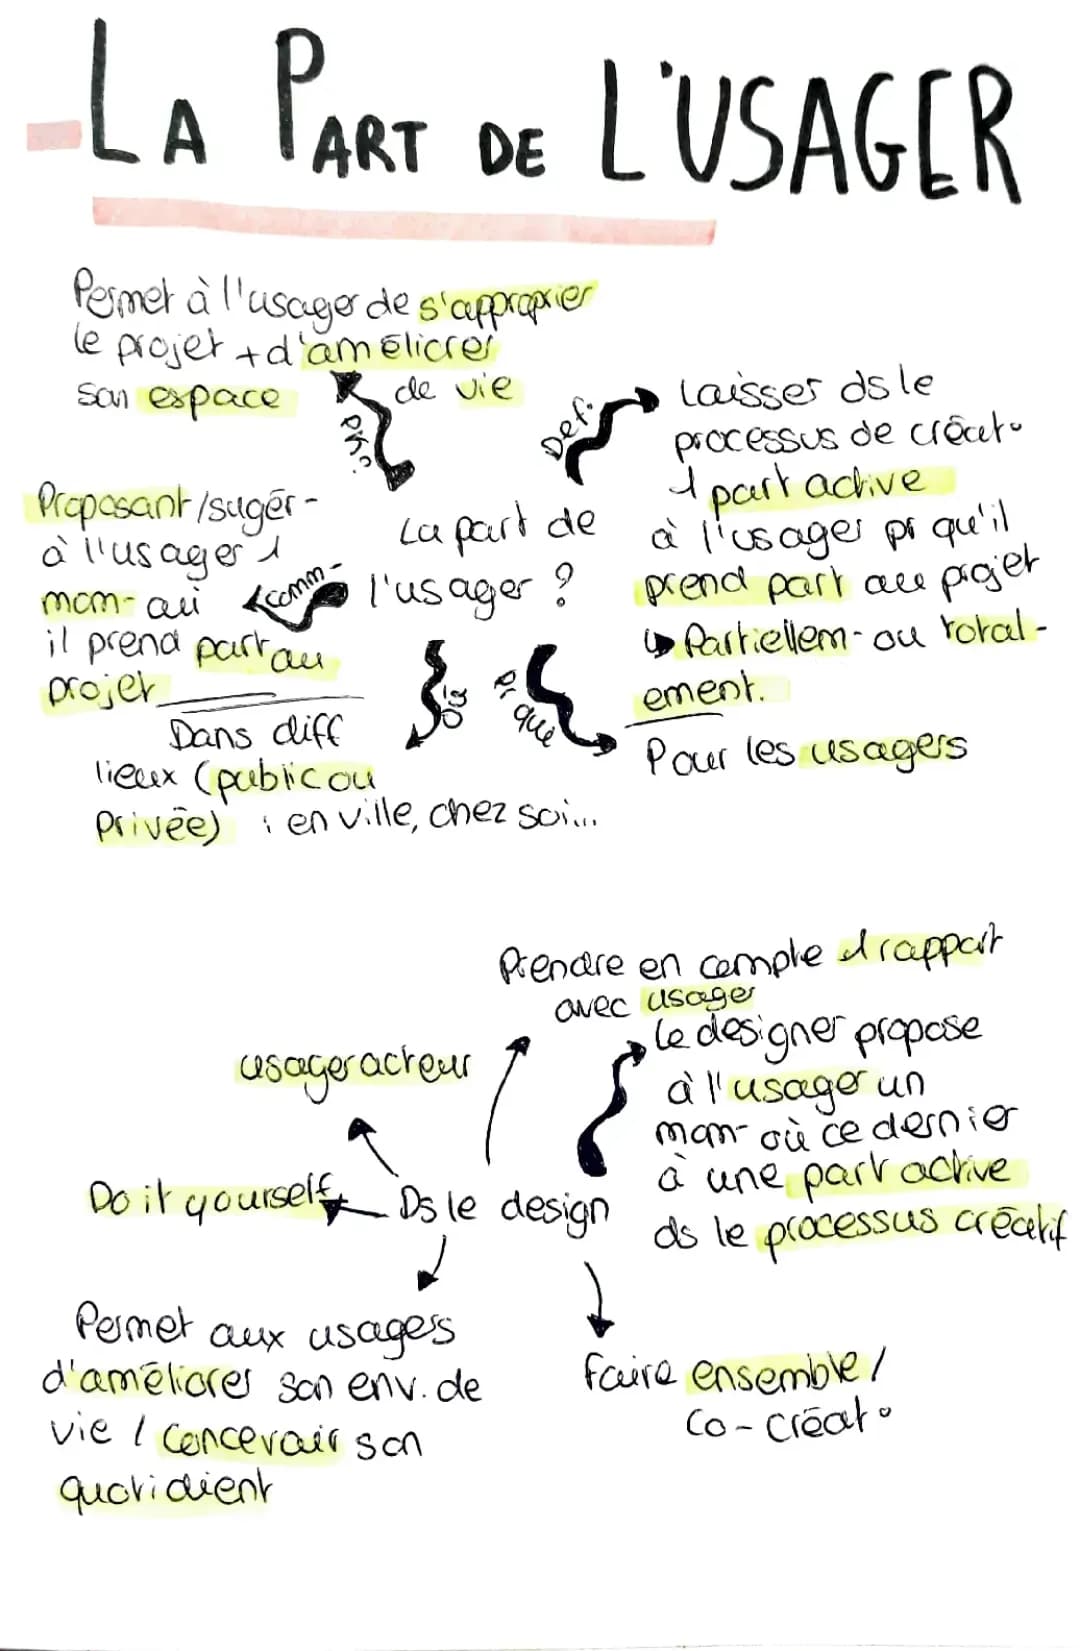 LA PART DE L'USAGER
Permet à l'usager de s'approprier
le projet + d'améliorer
son espace
de vie
Def.
Laisser ds le
processus de créat°
1 part active
à l'usager pr qu'il
prend part au projet
↳ Partiellem- ou total-
ement.
Proposant/sugér-
à l'usager 1
mom- où
il prend part au
projet
comm-
La part de
l'usager ?
Où
Pr qui
Pour les usagers
Dans diff
lieux (public ou
Privée) : en ville, chez soi...
Prendre en compte 1 rapport
avec usager
usager acteur
le designer propose
à l'usager un
mom- où ce dernier
à une part active
ds le processus créatif
Do it yourself
Ds le design
Permet aux usagers
d'améliorer son env. de
vie / Concevoir son
quotidient
Faire ensemble /
Co-créat°